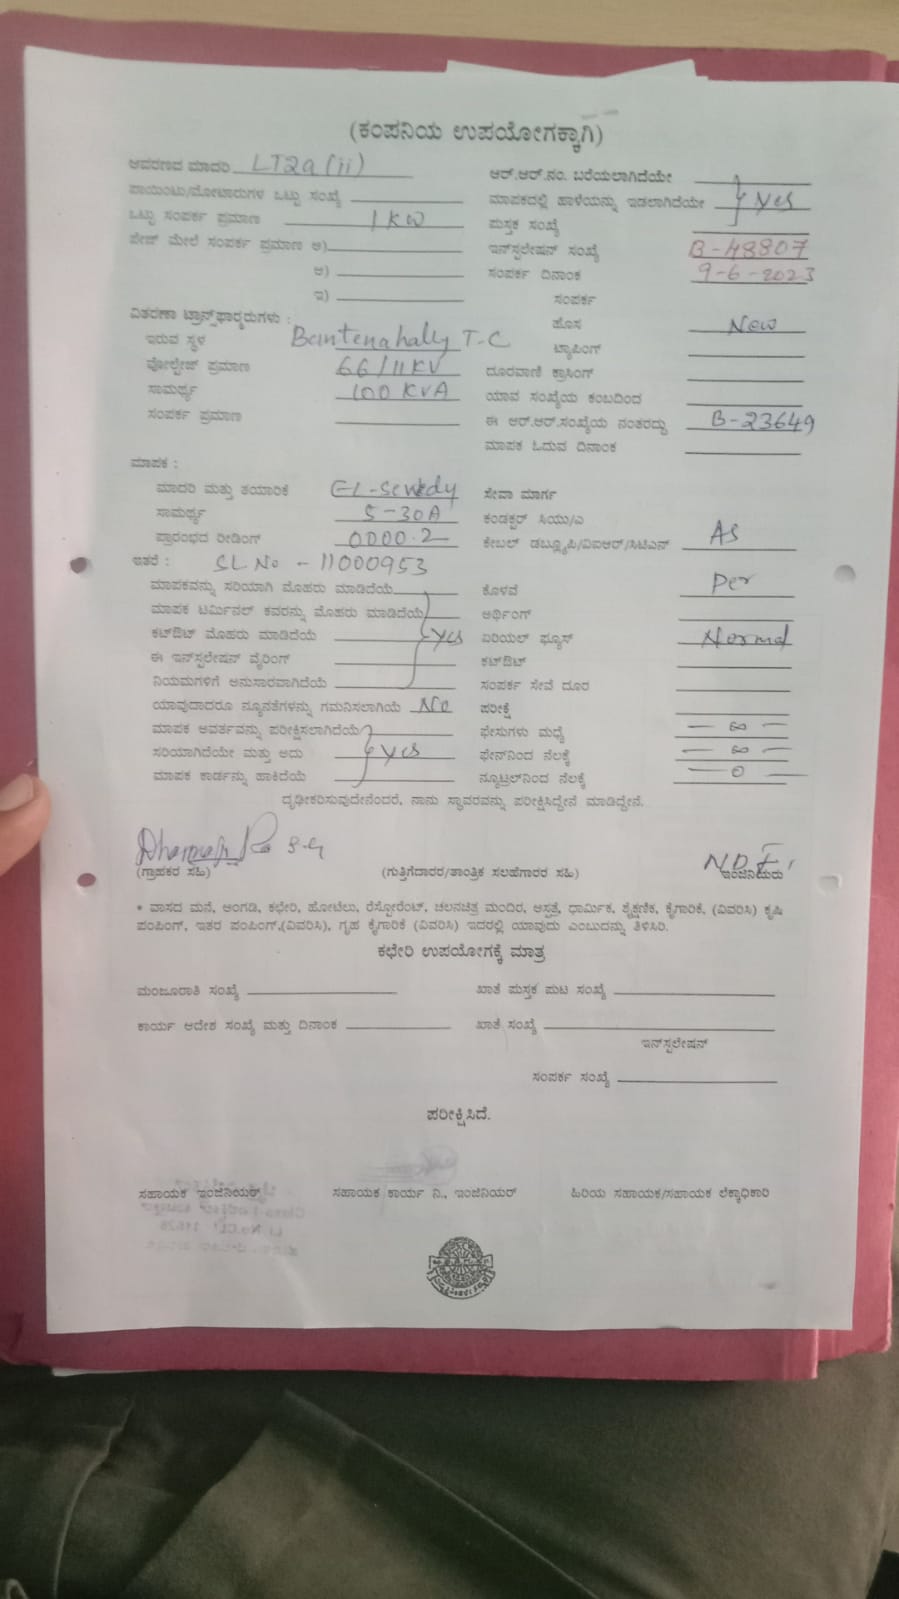 (ಕಂಪನಿಯ ಉಪಯೋಗಕ್ಕಾಗಿ)
ಆವರಣದ ಮಾದರಿ LT2a(ii)
ಪಾಯಿಂಟು/ಮೋಟಾರುಗಳ ಒಟ್ಟು ಸಂಖ್ಯೆ
ಒಟ್ಟು ಸಂಪರ್ಕ ಪ್ರಮಾಣ 1 KW
ಪೇಜ್ ಮೇಲೆ ಸಂಪರ್ಕ ಪ್ರಮಾಣ ಅ)
ಆ)
ಇ)
ಆರ್.ಆರ್.ನಂ. ಬರೆಯಲಾಗಿದೆಯೇ
ಮಾಪಕದಲ್ಲಿ ಹಾಳೆಯನ್ನು ಇಡಲಾಗಿದೆಯೇ Yes
ಪುಸ್ತಕ ಸಂಖ್ಯೆ
ಇನ್‌ಸ್ಟಲೇಷನ್ ಸಂಖ್ಯೆ B-48807
ಸಂಪರ್ಕ ದಿನಾಂಕ 9-6-2023
ಸಂಪರ್ಕ
ಹೊಸ New
ಟ್ಯಾಪಿಂಗ್
ದೂರವಾಣಿ ಕ್ರಾಸಿಂಗ್
ಯಾವ ಸಂಖ್ಯೆಯ ಕಂಬದಿಂದ
ಈ ಆರ್.ಆರ್.ಸಂಖ್ಯೆಯ ನಂತರದ್ದು B-23649
ಮಾಪಕ ಓದುವ ದಿನಾಂಕ
ವಿತರಣಾ ಟ್ರಾನ್ಸ್‌ಫಾರ್ಮರುಗಳು :
ಇರುವ ಸ್ಥಳ Bantenahally T.C
ವೋಲ್ಟೇಜ್ ಪ್ರಮಾಣ 66/11KV
ಸಾಮರ್ಥ್ಯ 100 KVA
ಸಂಪರ್ಕ ಪ್ರಮಾಣ
ಮಾಪಕ :
ಮಾದರಿ ಮತ್ತು ತಯಾರಿಕೆ EL-Sewedy
ಸಾಮರ್ಥ್ಯ 5-30A
ಪ್ರಾರಂಭದ ರೀಡಿಂಗ್ 0000.2
ಇತರೆ : SL No - 11000953
ಮಾಪಕವನ್ನು ಸರಿಯಾಗಿ ಮೊಹರು ಮಾಡಿದೆಯೆ
ಮಾಪಕ ಟರ್ಮಿನಲ್ ಕವರನ್ನು ಮೊಹರು ಮಾಡಿದೆಯೆ
ಕಟ್‌ಔಟ್ ಮೊಹರು ಮಾಡಿದೆಯೆ Yes
ಈ ಇನ್‌ಸ್ಟಲೇಷನ್ ವೈರಿಂಗ್
ನಿಯಮಗಳಿಗೆ ಅನುಸಾರವಾಗಿದೆಯೆ
ಯಾವುದಾದರೂ ನ್ಯೂನತೆಗಳನ್ನು ಗಮನಿಸಲಾಗಿಯೆ No
ಮಾಪಕ ಆವರ್ತವನ್ನು ಪರೀಕ್ಷಿಸಲಾಗಿದೆಯೆ
ಸರಿಯಾಗಿದೆಯೇ ಮತ್ತು ಅದು Yes
ಮಾಪಕ ಕಾರ್ಡನ್ನು ಹಾಕಿದೆಯೆ
ಸೇವಾ ಮಾರ್ಗ
ಕಂಡಕ್ಟರ್ ಸಿಯು/ಎ
ಕೇಬಲ್ ಡಬ್ಲ್ಯೂಪಿ/ವಿಐಆರ್/ಸಿಟಿಎಸ್ As
ಕೊಳವೆ Per
ಅರ್ಥಿಂಗ್
ಏರಿಯಲ್ ಫ್ಯೂಸ್ Normal
ಕಟ್‌ಔಟ್
ಸಂಪರ್ಕ ಸೇವೆ ದೂರ
ಪರೀಕ್ಷೆ
ಫೇಸುಗಳು ಮಧ್ಯೆ — ∞ —
ಫೇಸ್‌ನಿಂದ ನೆಲಕ್ಕೆ — ∞ —
ನ್ಯೂಟ್ರಲ್‌ನಿಂದ ನೆಲಕ್ಕೆ — 0 —
ದೃಢೀಕರಿಸುವುದೇನೆಂದರೆ, ನಾನು ಸ್ಥಾವರವನ್ನು ಪರೀಕ್ಷಿಸಿದ್ದೇನೆ ಮಾಡಿದ್ದೇನೆ.
(ಗ್ರಾಹಕರ ಸಹಿ) (ಗುತ್ತಿಗೆದಾರರ/ತಾಂತ್ರಿಕ ಸಲಹೆಗಾರರ ಸಹಿ) ಇಂಜಿನಿಯರು
* ವಾಸದ ಮನೆ, ಅಂಗಡಿ, ಕಛೇರಿ, ಹೋಟೆಲು, ರೆಸ್ಟೋರೆಂಟ್, ಚಲನಚಿತ್ರ ಮಂದಿರ, ಆಸ್ಪತ್ರೆ, ಧಾರ್ಮಿಕ, ಶೈಕ್ಷಣಿಕ, ಕೈಗಾರಿಕೆ, (ವಿವರಿಸಿ) ಕೃಷಿ
ಪಂಪಿಂಗ್, ಇತರ ಪಂಪಿಂಗ್,(ವಿವರಿಸಿ), ಗೃಹ ಕೈಗಾರಿಕೆ (ವಿವರಿಸಿ) ಇದರಲ್ಲಿ ಯಾವುದು ಎಂಬುದನ್ನು ತಿಳಿಸಿರಿ.
ಕಛೇರಿ ಉಪಯೋಗಕ್ಕೆ ಮಾತ್ರ
ಮಂಜೂರಾತಿ ಸಂಖ್ಯೆ ಖಾತೆ ಪುಸ್ತಕ ಪುಟ ಸಂಖ್ಯೆ
ಕಾರ್ಯ ಆದೇಶ ಸಂಖ್ಯೆ ಮತ್ತು ದಿನಾಂಕ ಖಾತೆ ಸಂಖ್ಯೆ
ಇನ್‌ಸ್ಟಲೇಷನ್
ಸಂಪರ್ಕ ಸಂಖ್ಯೆ
ಪರೀಕ್ಷಿಸಿದೆ.
ಸಹಾಯಕ ಇಂಜಿನಿಯರ್ ಸಹಾಯಕ ಕಾರ್ಯ ನಿ., ಇಂಜಿನಿಯರ್ ಹಿರಿಯ ಸಹಾಯಕ/ಸಹಾಯಕ ಲೆಕ್ಕಾಧಿಕಾರಿ